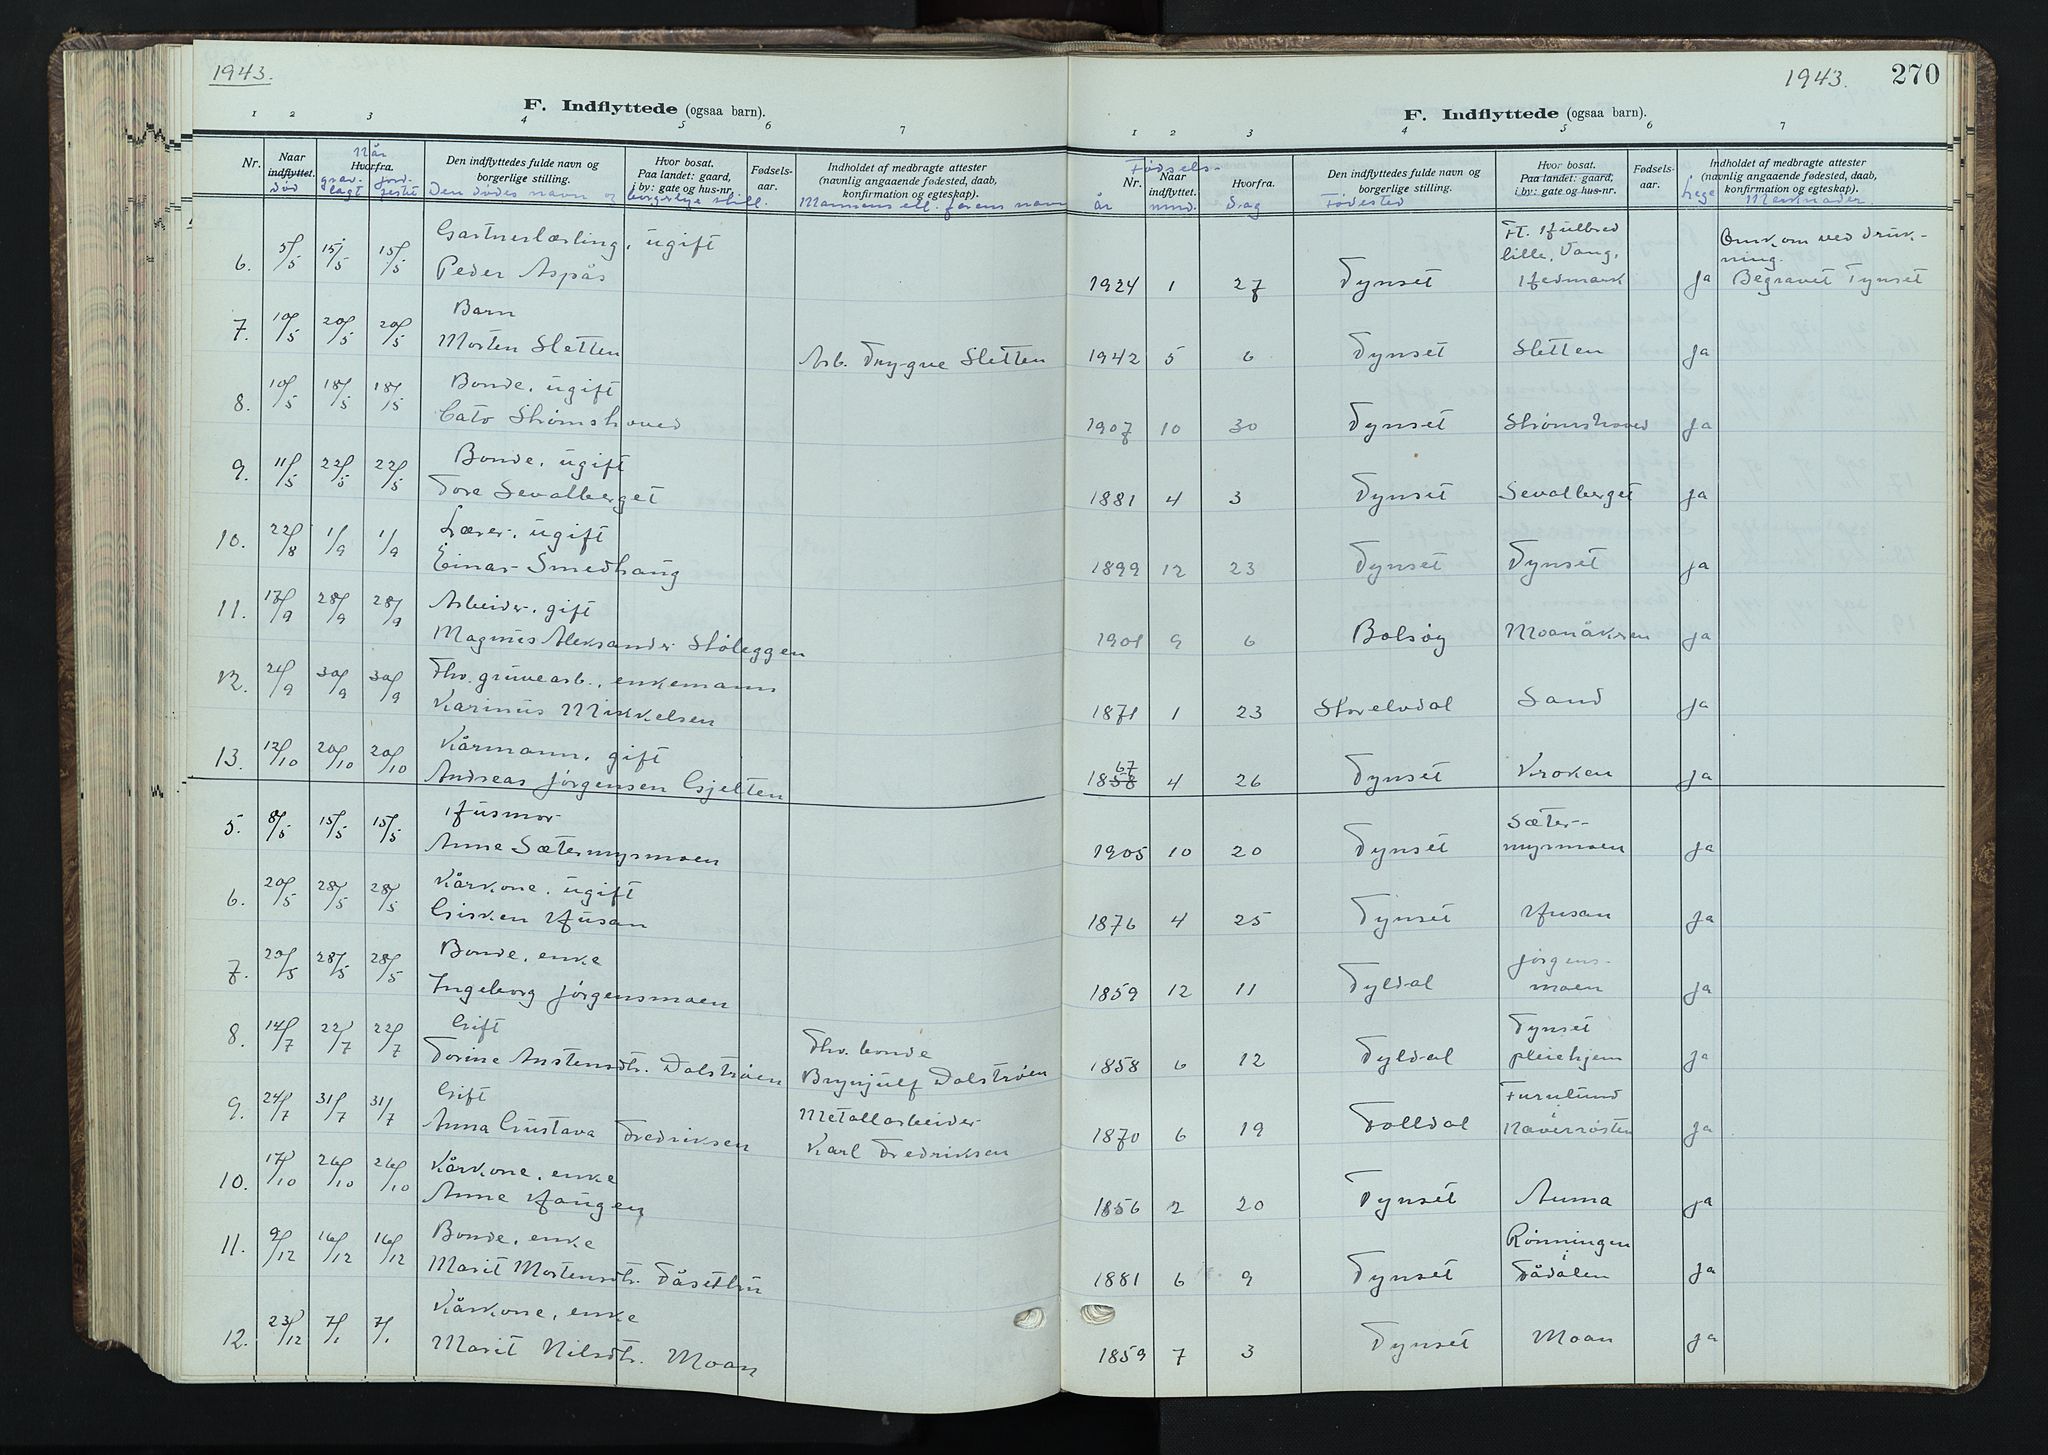 1943.
F. Indflyttede (ogsaa barn).
1 2 3 4 5 6 7
Nr. Naar indflyttet. Hvorfra. Den indflyttedes fulde navn og borgerlige stilling. Hvor bosat. Paa landet: gaard, i by: gate og hus-nr. Fødsels-aar. Indholdet af medbragte attester (navnlig angaaende fødested, daab, konfirmation og egteskap).
død Når grav-lagt jord-festet Den dødes navn og borgerlige still. Mannens ell. farens navn
Gartnerlærling, ugift
6. 5/5 15/5 15/5 Peder Aspås
Barn
7. 10/5 20/5 20/5 Morten Sletten Arb. Trygve Sletten
Bonde, ugift
8. 10/5 18/5 18/5 Cato Strømshoved
Bonde, ugift
9. 11/5 22/5 22/5 Tore Sevalberget
Lærer, ugift
10. 22/8 1/9 1/9 Einar Smedhaug
Arbeider, gift
11. 17/9 28/9 28/9 Magnus Aleksander Støleggen
Fhv. gruvearb., enkemann
12. 21/9 30/9 30/9 Karinus Mikkelsen
Kårmann, gift
13. 12/10 20/10 20/10 Andreas Jørgensen Gjelten
Husmor
5. 8/5 15/5 15/5 Anne Sætermyrmoen
Kårkone, ugift
6. 20/5 28/5 28/5 Gisken Husan
Bonde, enke
7. 20/5 28/5 28/5 Ingeborg Jørgensmoen
Gift Fhv. bonde
8. 14/7 22/7 22/7 Torine Austensdtr. Dalstrøen Brynjulf Dalstrøen
Gift Metallarbeider
9. 24/7 31/7 31/7 Anna Gustava Fredriksen Karl Fredriksen
Kårkone, enke
10. 17/10 26/10 26/10 Anne Haugen
Bonde, enke
11. 9/12 16/12 16/12 Marit Mortensdtr. Fåsetbru
Kårkone, enke
12. 23/12 7/1 7/1 Marit Nilsdtr. Moan
1943. 270
F. Indflyttede (ogsaa barn).
1 2 3 4 5 6 7
Nr. Naar indflyttet. Hvorfra. Den indflyttedes fulde navn og borgerlige stilling. Hvor bosat. Paa landet: gaard, i by: gate og hus-nr. Fødsels-aar. Indholdet af medbragte attester (navnlig angaaende fødested, daab, konfirmation og egteskap).
Fødsels-år mnd. dag Fødested Lege Merknader
Ht. Hulbred
lille, Vang, Omkom ved druk-ning.
1924 1 27 Tynset Hedmark Ja Begravet Tynset
1942 5 6 Tynset Sletten Ja
1907 10 30 Tynset Strømshoved Ja
1881 4 3 Tynset Sevalberget Ja
1899 12 23 Tynset Tynset Ja
1901 9 6 Bolsøy Moanåkeren Ja
1871 1 23 Storelvdal Sand Ja
67
1858 4 26 Tynset Kroken Ja
Sæter-
1905 10 20 Tynset myrmoen Ja
1876 4 25 Tynset Husan Ja
Jørgens-
1859 12 11 Tyldal moen Ja
Tynset
1858 6 12 Tyldal pleiehjem Ja
Furulund
i
1870 6 19 Folldal Naverrosten Ja
1856 2 20 Tynset Auma Ja
Rønningen
i
1881 6 9 Tynset Fådalen Ja
1859 7 3 Tynset Moan Ja